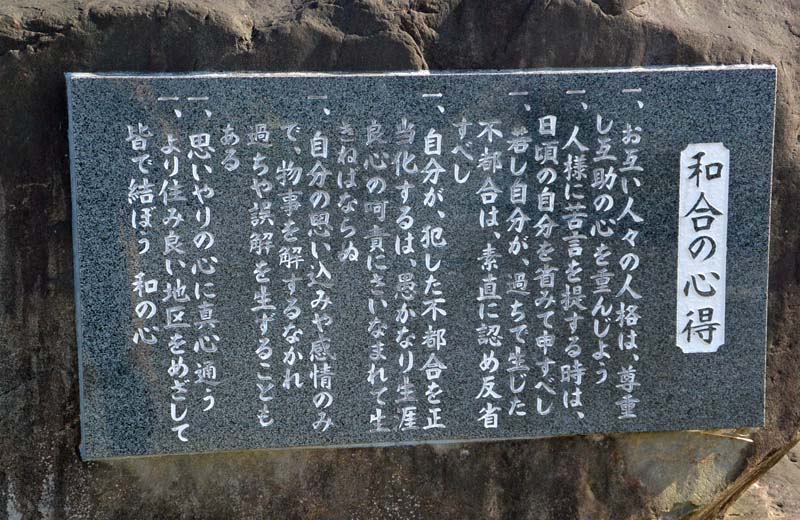 和合の心得
一、お互い人々の人格は、尊重
し互助の心を重んじよう
一、人様に苦言を提する時は、
日頃の自分を省みて申すべし
一、若し自分が、過ちて生じた
不都合は、素直に認め反省
すべし
一、自分が、犯した不都合を正
当化するは、愚かなり生涯
良心の呵責にさいなまれて生
きねばならぬ
一、自分の思い込みや感情のみ
で、物事を解するなかれ
過ちや誤解を生ずることも
ある
一、思いやりの心に真心通う
一、より住み良い地区をめざして
皆で結ぼう 和の心